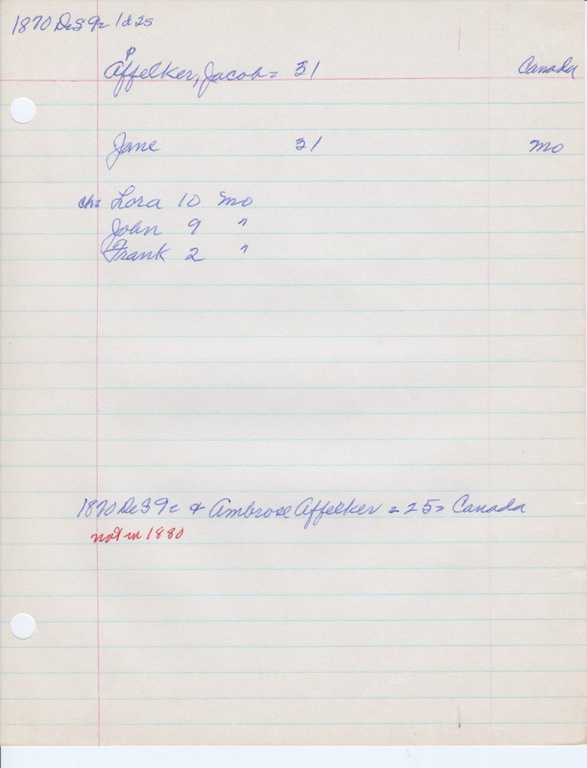 1870 DeS 9= 1d2s
P
Affelker, Jacob = 31 Canada
Jane 31 Mo
ch: Lora 10 Mo
John 9 "
Frank 2 "
1870 DeS 9= & Ambrose Affelker = 25 = Canada
not in 1880